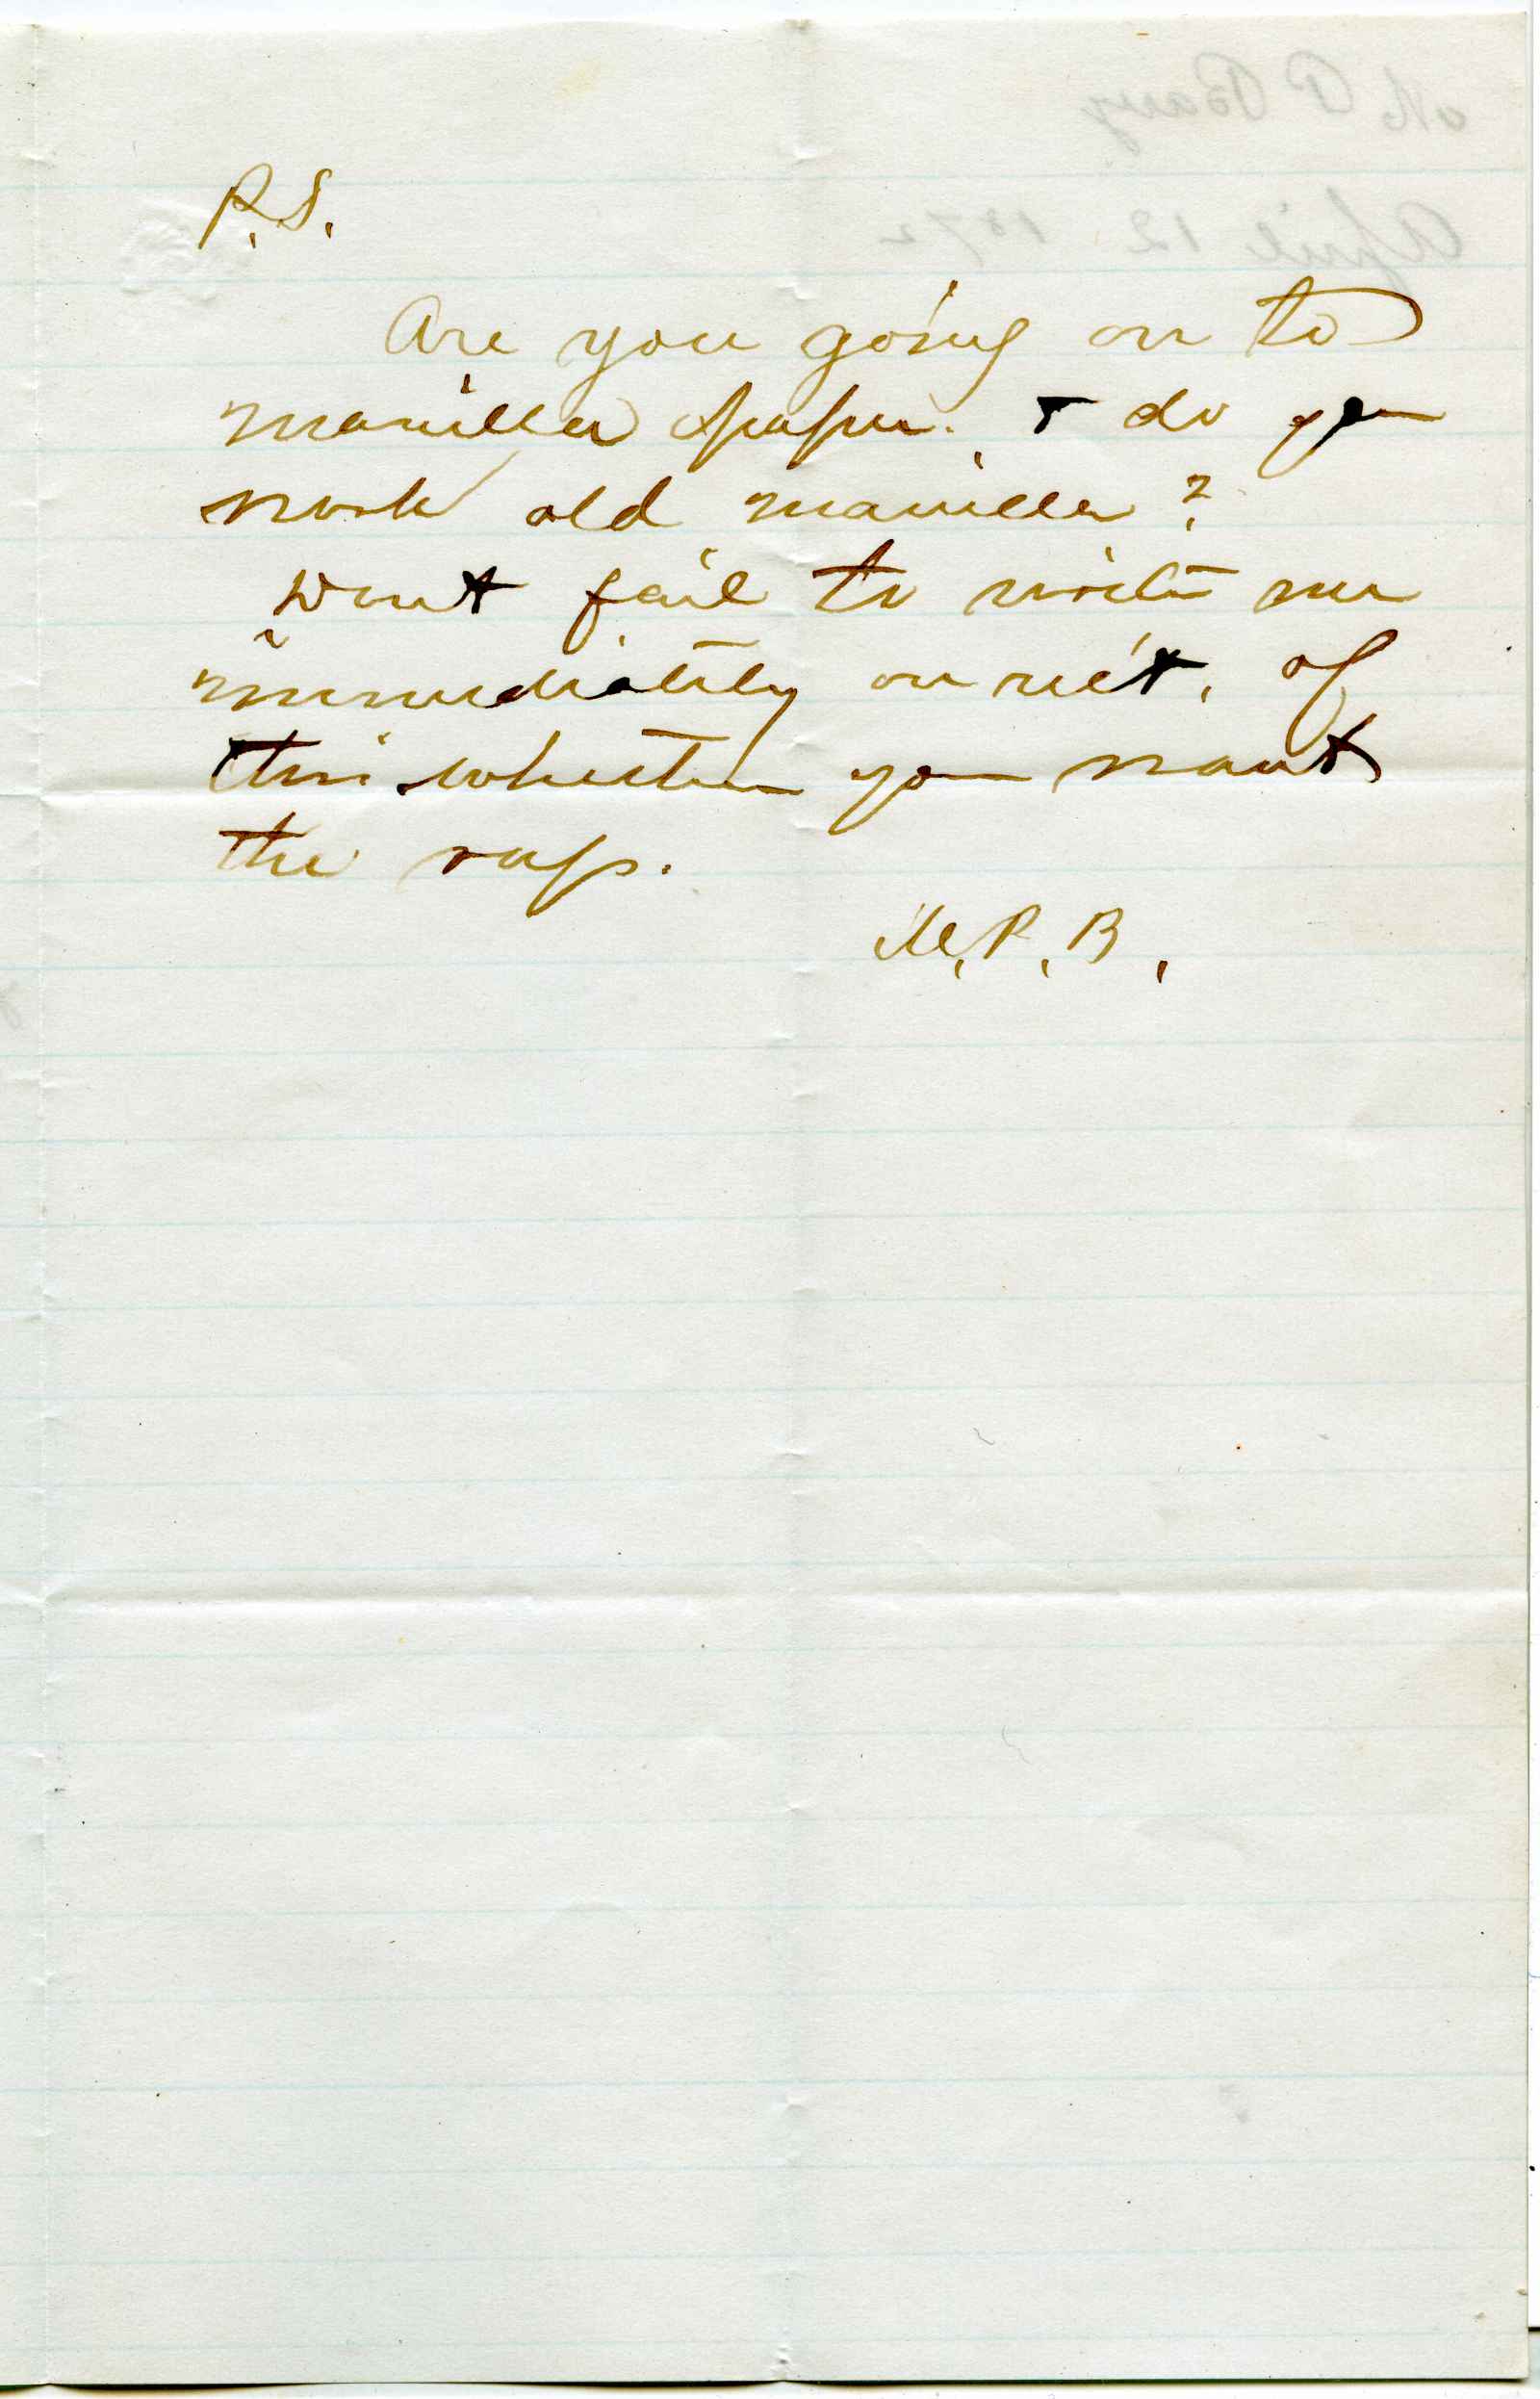 M P
April 12 1872
P.S.
Are you going on to
manilla paper. & do you
work old manilla?
Dont fail to write me
immediately on rec't. of
this whether you want
the rope.
M. P. B.